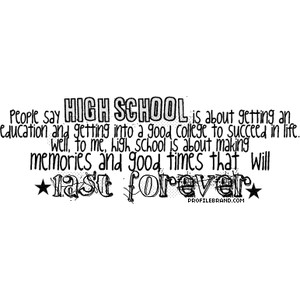 People say HIGH SCHOOL is about getting an
education and getting into a good college to succeed in life.
Well, to me, high school is about making
memories and good times that will
last forever
PROFILEBRAND.COM